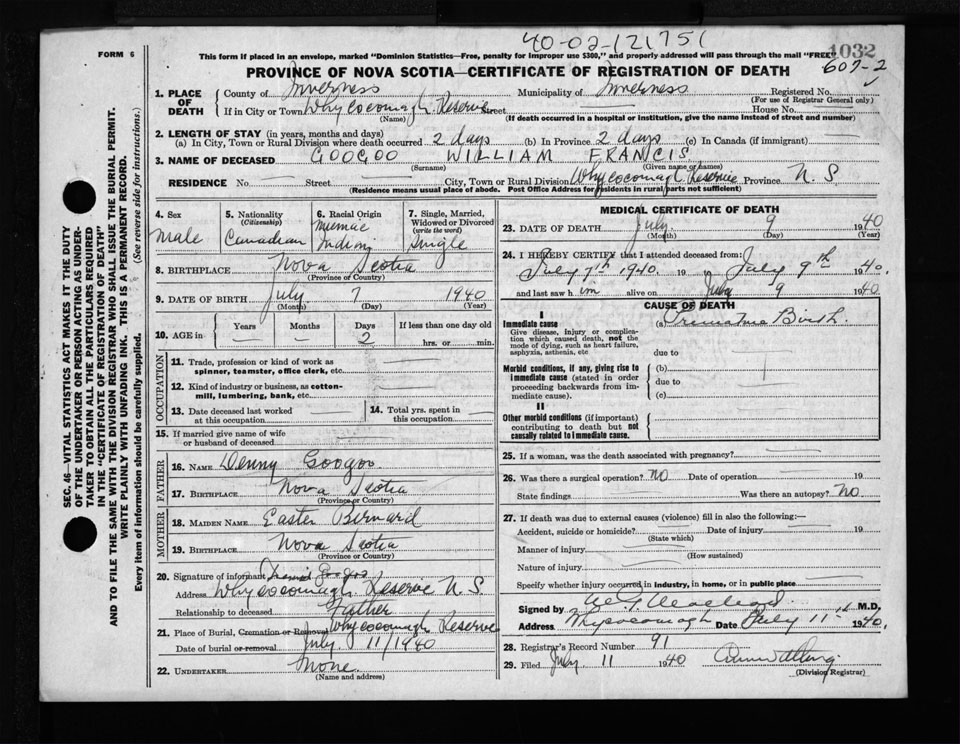 40-02-121751
1032
FORM 6
This form if placed in an envelope, marked "Dominion Statistics—Free, penalty for improper use $300," and properly addressed will pass through the mail "FREE"
607-2
PROVINCE OF NOVA SCOTIA—CERTIFICATE OF REGISTRATION OF DEATH
SEC. 46—VITAL STATISTICS ACT MAKES IT THE DUTY
OF THE UNDERTAKER OR PERSON ACTING AS UNDER-
TAKER TO OBTAIN ALL THE PARTICULARS REQUIRED
IN THE "CERTIFICATE OF REGISTRATION OF DEATH"
AND TO FILE THE SAME WITH THE DIVISION REGISTRAR WHO SHALL ISSUE THE BURIAL PERMIT.
WRITE PLAINLY WITH UNFADING INK. THIS IS A PERMANENT RECORD.
Every item of information should be carefully supplied. (See reverse side for instructions.)
1. PLACE OF DEATH County of Inverness Municipality of Inverness Registered No.
(For use of Registrar General only)
If in City or Town Whycocomagh Reserve Street House No.
(Name) (If death occurred in a hospital or institution, give the name instead of street and number)
2. LENGTH OF STAY (in years, months and days)
(a) In City, Town or Rural Division where death occurred 2 days (b) In Province 2 days (c) In Canada (if immigrant)
3. NAME OF DECEASED GOOGOO WILLIAM FRANCIS
(Surname) (Given name or names)
RESIDENCE No. Street City, Town or Rural Division Whycocomagh Reserve Province N. S
(Residence means usual place of abode. Post Office Address for residents in rural parts not sufficient)
4. Sex Male
5. Nationality (Citizenship) Canadian
6. Racial Origin Micmac Indian
7. Single, Married, Widowed or Divorced (write the word) Single
8. BIRTHPLACE Nova Scotia
(Province or Country)
9. DATE OF BIRTH July 7 1940
(Month) (Day) (Year)
10. AGE in Years Months Days 2 If less than one day old
hrs. or min.
OCCUPATION
11. Trade, profession or kind of work as
spinner, teamster, office clerk, etc.
12. Kind of industry or business, as cotton-
mill, lumbering, bank, etc.
13. Date deceased last worked
at this occupation
14. Total yrs. spent in
this occupation
15. If married give name of wife
or husband of deceased
FATHER
16. NAME Denny Googoo
17. BIRTHPLACE Nova Scotia
(Province or Country)
MOTHER
18. MAIDEN NAME Easter Bernard
19. BIRTHPLACE Nova Scotia
(Province or Country)
20. Signature of informant Googoo
Address Whycocomagh Reserve N. S
Relationship to deceased Father
21. Place of Burial, Cremation or Removal Whycocomagh Reserve
Date of burial or removal July 11/1940
22. UNDERTAKER None
(Name and address)
MEDICAL CERTIFICATE OF DEATH
23. DATE OF DEATH July 9 1940
(Month) (Day) (Year)
24. I HEREBY CERTIFY that I attended deceased from:
July 7th 1940 19 July 9th 1940.
and last saw h im alive on July 9 1940
CAUSE OF DEATH
I
Immediate cause (a) Premature Birth.
Give disease, injury or complica-
tion which caused death, not the
mode of dying, such as heart failure,
asphyxia, asthenia, etc due to
Morbid conditions, if any, giving rise to (b)
immediate cause (stated in order due to
proceeding backwards from im-
mediate cause). (c)
II
Other morbid conditions (if important)
contributing to death but not
causally related to immediate cause.
25. If a woman, was the death associated with pregnancy?
26. Was there a surgical operation? No Date of operation 19
State findings Was there an autopsy? No
27. If death was due to external causes (violence) fill in also the following:—
Accident, suicide or homicide? Date of injury 19
(State which)
Manner of injury
(How sustained)
Nature of injury
Specify whether injury occurred in industry, in home, or in public place
Signed by M.D.
Address Whycocomagh Date July 11th 1940.
28. Registrar's Record Number 91
29. Filed July 11 1940
(Division Registrar)